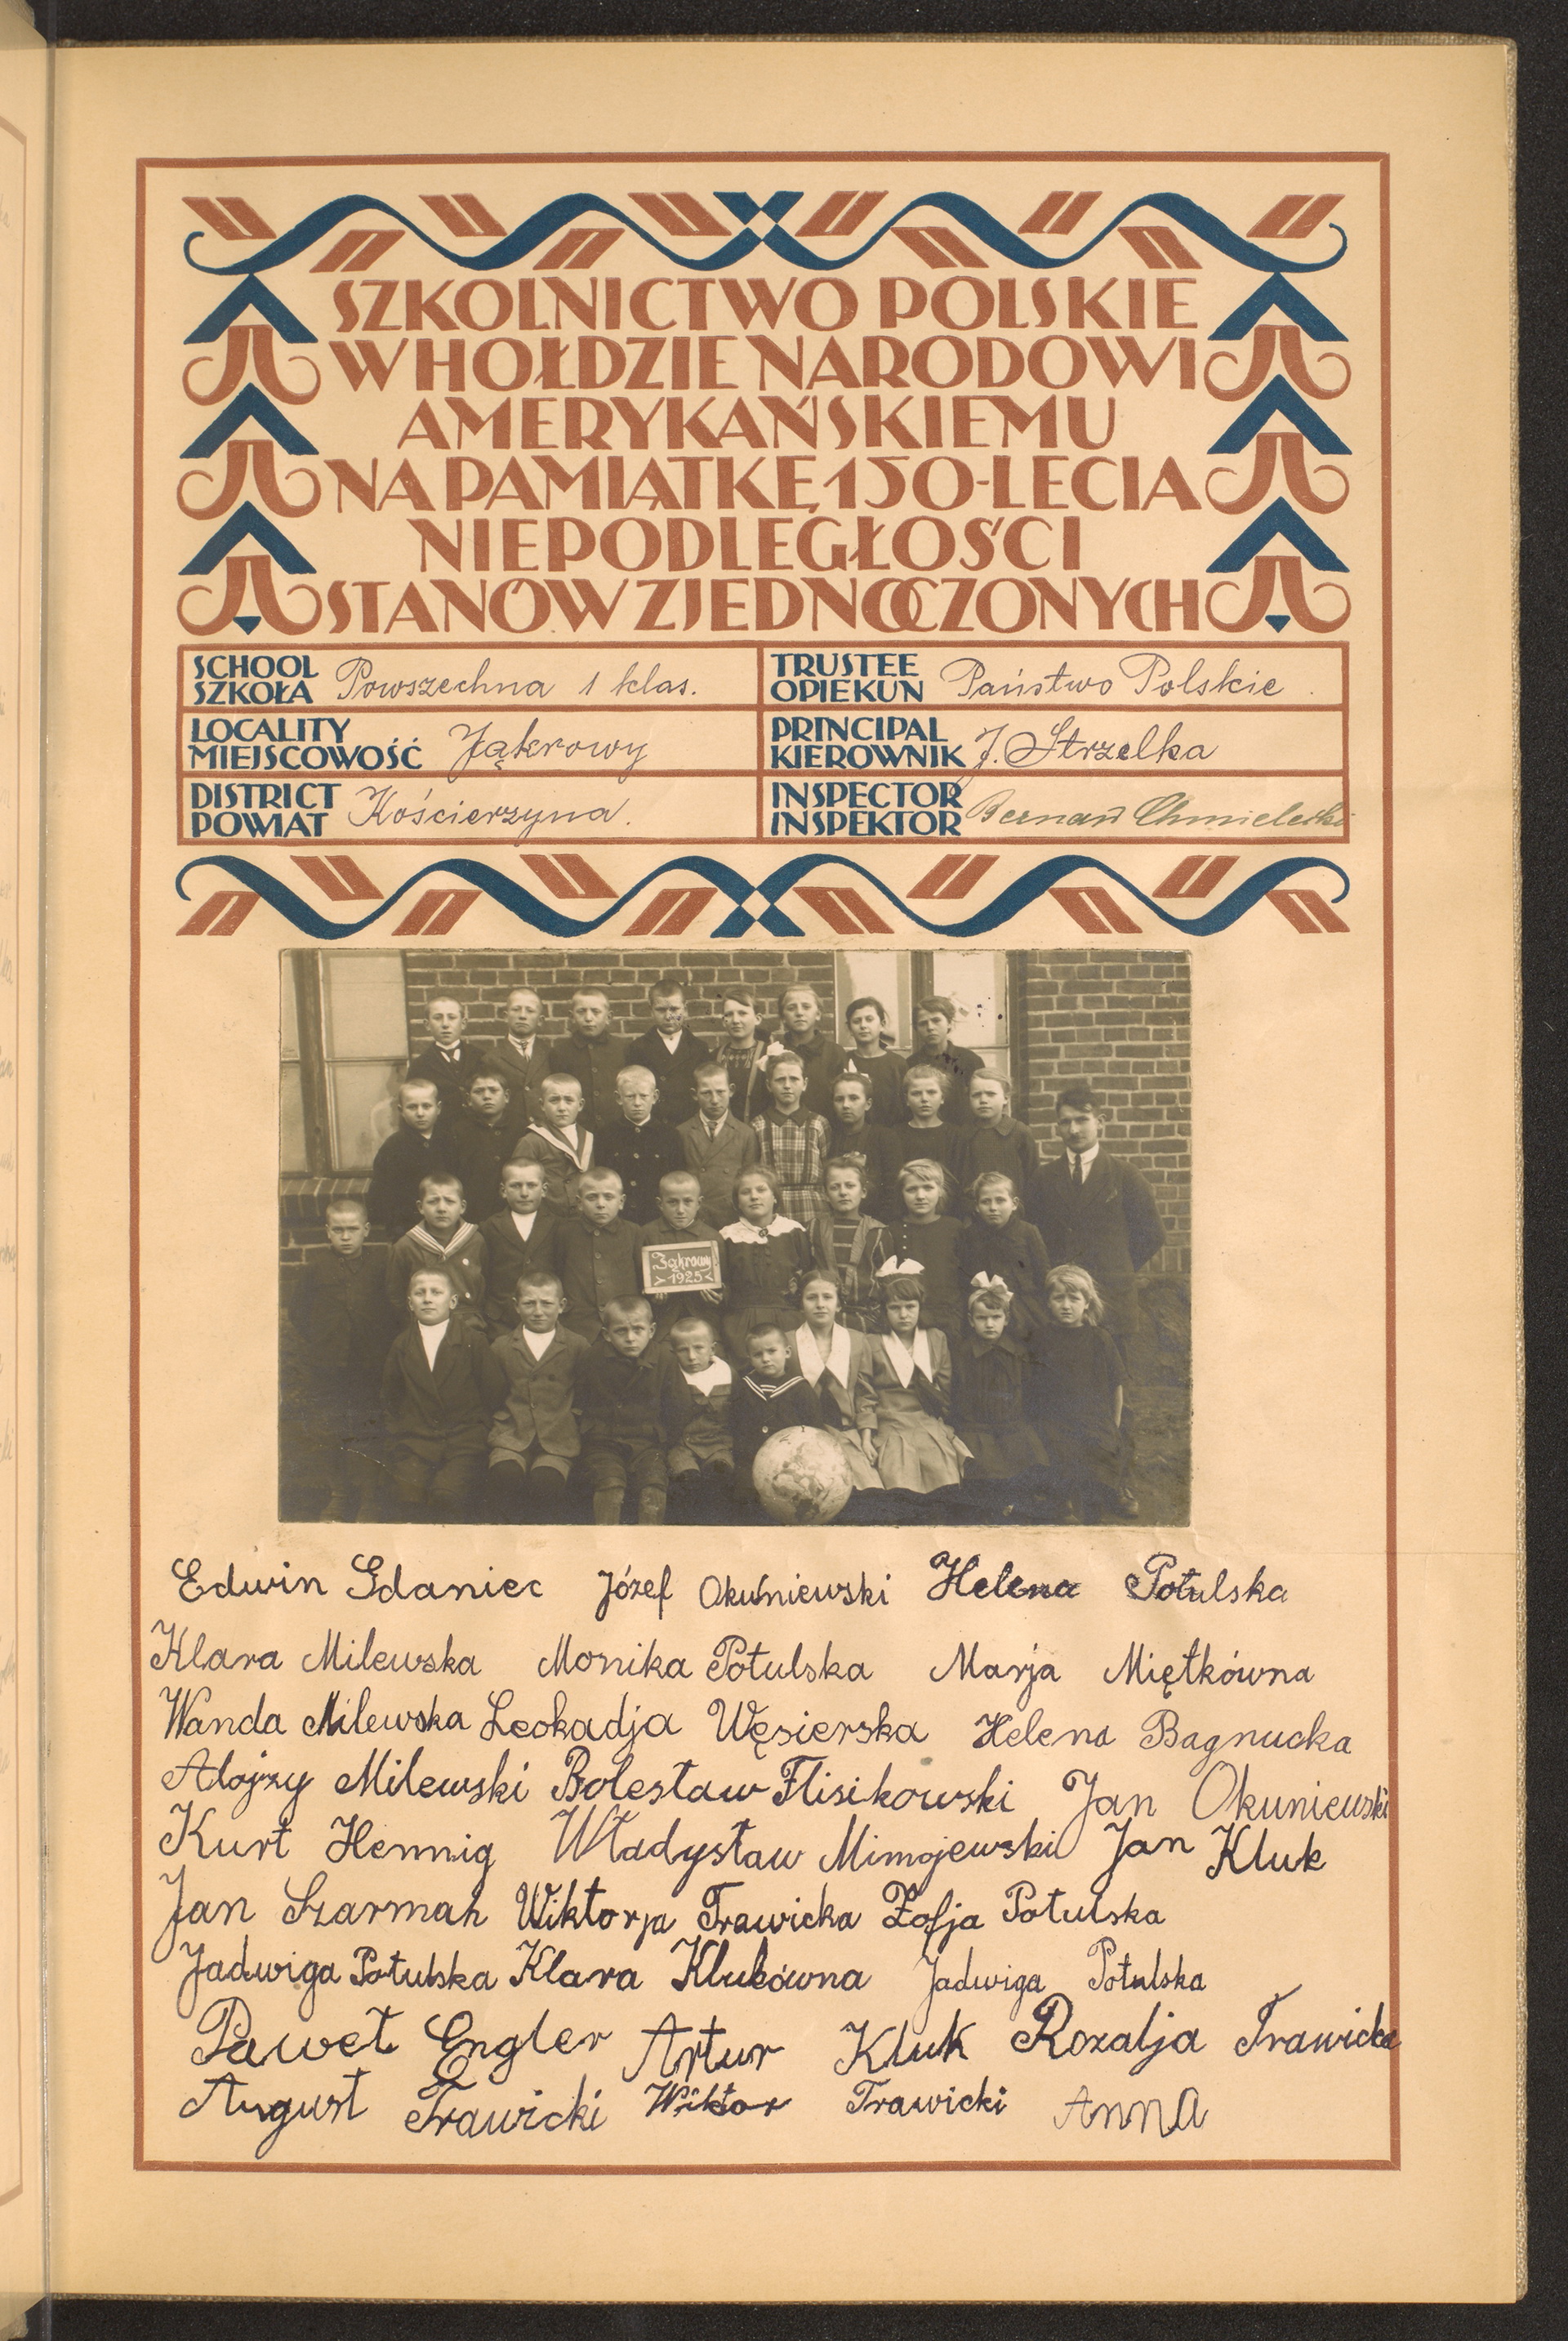 SZKOLNICTWO POLSKIE
W HOŁDZIE NARODOWI
AMERYKAŃSKIEMU
NA PAMIĄTKĘ 150-LECIA
NIEPODLEGŁOŚCI
STANÓW ZJEDNOCZONYCH
SCHOOL
SZKOŁA Powszechna 1 klas.
TRUSTEE
OPIEKUN Państwo Polskie.
LOCALITY
MIEJSCOWOŚĆ Ząkrowy
PRINCIPAL
KIEROWNIK J. Strzelka
DISTRICT
POWIAT Kościerzyna.
INSPECTOR
INSPEKTOR Bernard Chmielecki
Ząkrowy
1925
Edwin Gdaniec Józef Okuśniewski Helena Potulska
Klara Milewska Monika Potulska Marja Miętkówna
Wanda Milewska Leokadja Węsierska Helena Bagnucka
Alojzy Milewski Bolesław Flisikowski Jan Okuniewski
Kurt Hennig Władysław Mimojewski Jan Kluk
Jan Szarmah Wiktorja Trawicka Zofja Potulska
Jadwiga Potulska Klara Klukówna Jadwiga Potulska
Paweł Engler Artur Kluk Rozalja Trawicka
August Trawicki Wiktor Trawicki Anna